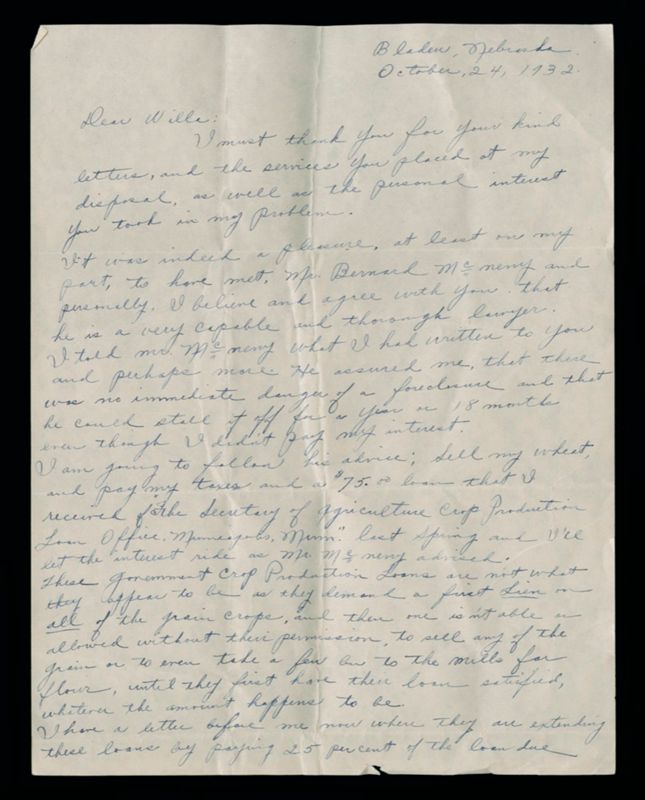 Bladen, Nebraska.
October, 24, 1932.
Dear Willa:
I must thank you for your kind
letters, and the services you placed at my
disposal, as well as the personal interest
you took in my problem.
It was indeed a pleasure, at least on my
part, to have met, Mr. Bernard McNeny and
personally. I believe and agree with you that
he is a very capable and thorough lawyer.
I told Mr. McNeny what I had written to you
and perhaps more. He assured me, that there
was no immediate danger of a foreclosure and that
he could stall it off for a year or 18 months
even though I didn't pay my interest.
I am going to follow his advice; Sell my wheat,
and pay my taxes and a $75.00 loan that I
received "The Secretary of Agriculture Crop Production
Loan Office, Minneapolis, Minn." last Spring and I'll
let the interest ride as Mr. McNeny advised.
These Government Crop Production Loans are not what
they appear to be as they demand a first Lien on
all of the grain crops, and then one isn't able or
allowed without their permission, to sell any of the
grain or to even take a few bu to the mills for
flour, until they first have their loan satisfied,
whatever the amount happens to be.
I have a letter before me now where they are extending
these loans by paying 25 per cent of the loan due